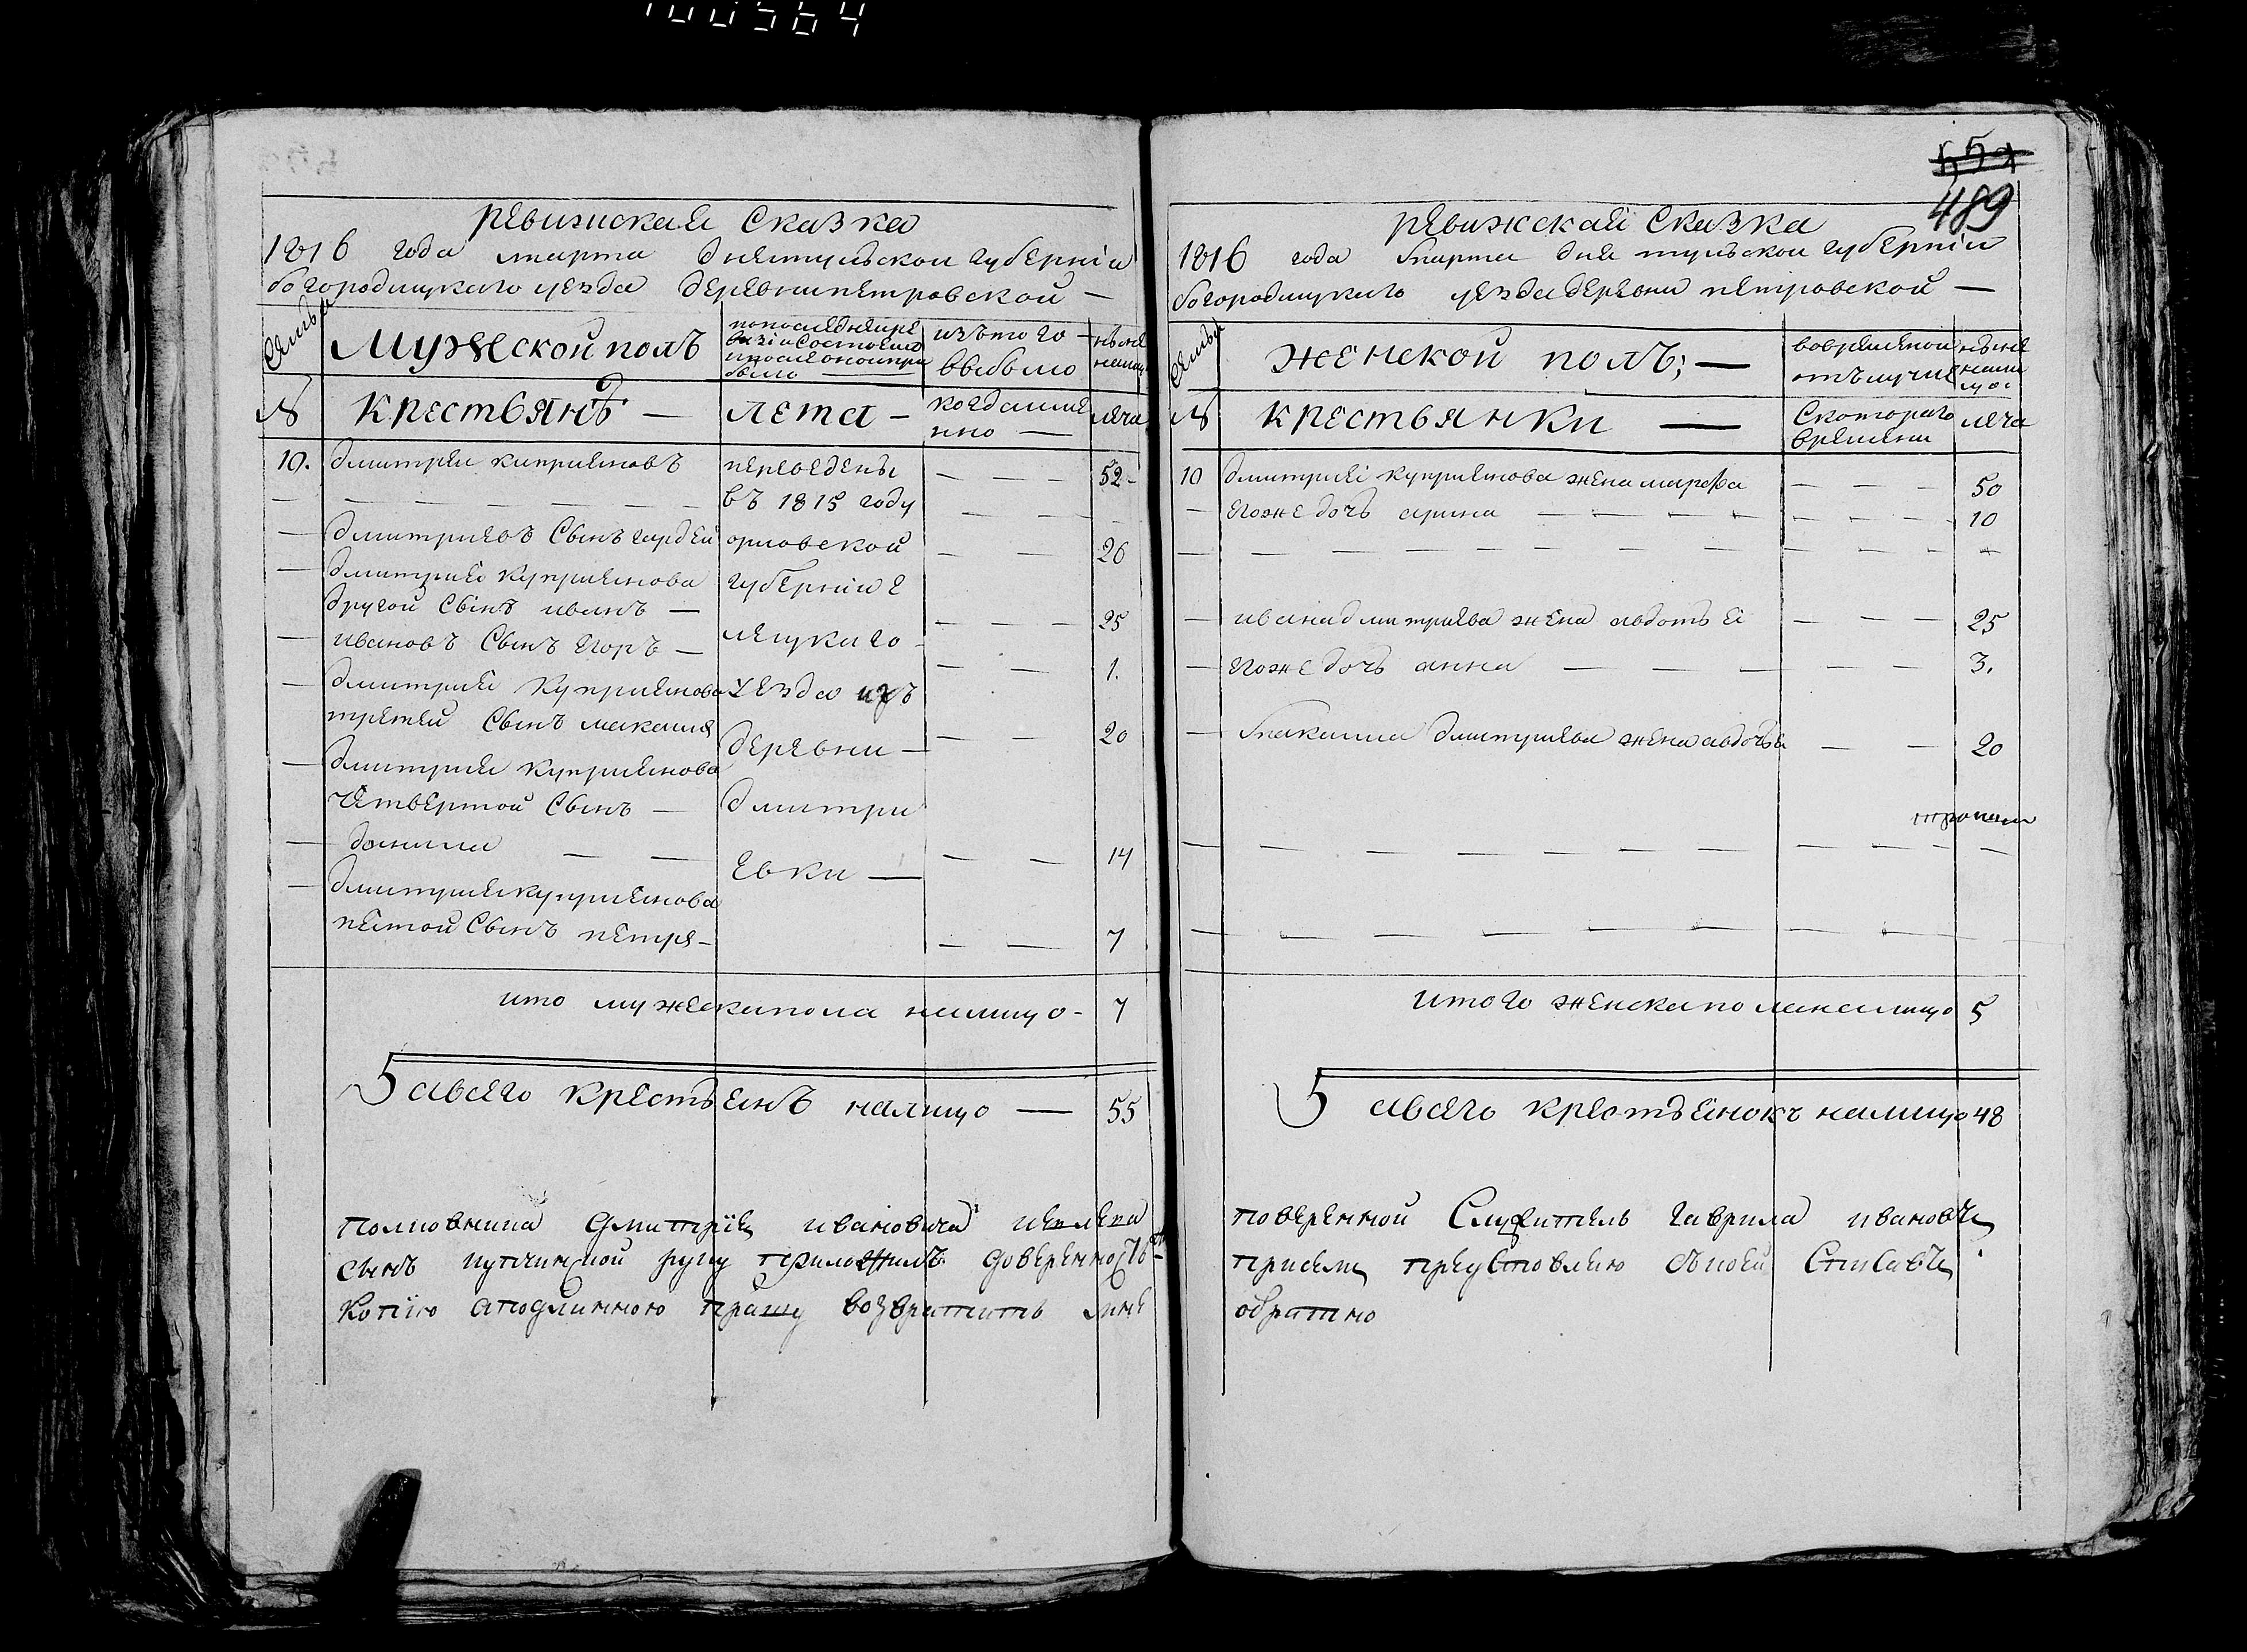 100564
ревизиская Сказка
1816 года марта дня тульской губерніи
богородицкаго уезда деревни петровской —
Семьи
Мужеской полъ
по последней ре
визіи состояло
и после оной при
было —
изътого
выбыло
ныне
налицо
№
Крестьянъ —
лета —
когда име
нно —
лета
10. дмитреи киприяновъ переведены — — — 52 -
— — — — — — въ 1815 году — — —
— дмитриевъ Сынъ гардей орловской — — 26
— дмитрия куприянова губерніи е
другой Сынъ иванъ — — — — 25
— ивановъ Сынъ Егоръ — лецкаго — — 1.
— дмитрия Куприянова уезда изъ
третей Сынъ макаша деревни — — — 20
— дмитрия куприянова
четвертой Сынъ — дмитри
— данила — — евки — — — 14
— дмитрия куприянова
пятой Сынъ петра - — — 7
ито мужеска пола налицо - 7
авсего крестьянъ налицо — 55
полковника Дмитрія ивановича
сынъ руку приложилъ доверенность
Копію аподлинною прашу возвратить мне
559
489
ревижская Сказка
1816 года марта дня тульской губерніи
богородицкаго уезда деревни петровской —
Семьи
женской полъ; —
вовременой
отълучке
ныне
нали
цо:
№
крестьянки —
Скотораго
времени
лета
10 дмитрия куприянова жена марфа — — — 50
— егоже дочь арина — — — — — — — — 10
— — — — — — — — — — — —
— ивана дмитриева жена авдотья — — — 25
— егоже дочь анна — — — — — — 3.
— макаша дмитриева жена авдотья — — 20
— — — — — — — — — — — —
— — — — — — — — — —
итого женска пола налицо 5
авсего крестьянокъ налицо 48
поверенной Служитель гаврила ивановъ
обратно